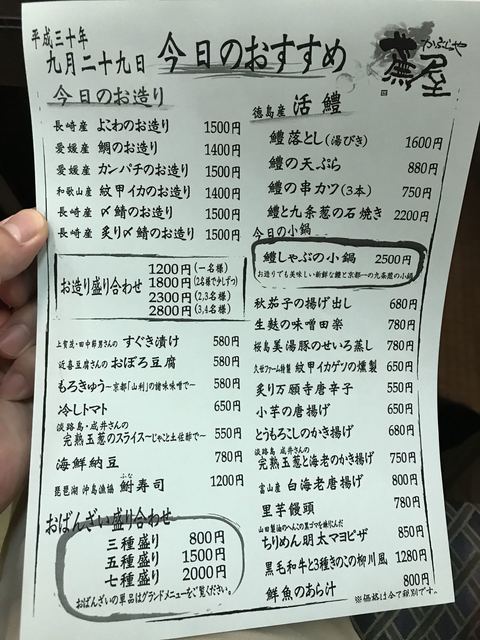 平成三十年
九月二十九日 今日のおすすめ
かぶらや
蕪屋
今日のお造り
長崎産 よこわのお造り 1500円
愛媛産 鯛のお造り 1400円
愛媛産 カンパチのお造り 1500円
和歌山産 紋甲イカのお造り 1400円
長崎産 〆鯖のお造り 1500円
長崎産 炙り〆鯖のお造り 1500円
お造り盛り合わせ
1200円(一名様)
1800円(2名様で少しずつ)
2300円(2,3名様)
2800円(3,4名様)
上賀茂・田中幹男さんの すぐき漬け 580円
近喜豆腐さんの おぼろ豆腐 580円
もろきゅう〜京都「山利」の諸味味噌で〜 580円
冷しトマト 650円
淡路島・成井さんの
完熟玉葱のスライス〜じゃこと土佐酢で〜 550円
海鮮納豆 780円
琵琶湖 沖島漁協 鮒寿司 1200円
ふな
おばんざい盛り合わせ
三種盛り 800円
五種盛り 1500円
七種盛り 2000円
おばんざいの単品はグランドメニューをご覧ください。
徳島産 活鱧
鱧落とし(湯びき) 1600円
鱧の天ぷら 880円
鱧の串カツ(3本) 750円
鱧と九条葱の石焼き 2200円
今日の小鍋
鱧しゃぶの小鍋 2500円
お造りでも美味しい新鮮な鱧と京都一の九条葱の小鍋
秋茄子の揚げ出し 680円
生麩の味噌田楽 780円
桜島美湯豚のせいろ蒸し 780円
久世ファーム特製 紋甲イカゲソの燻製 650円
炙り万願寺唐辛子 550円
小芋の唐揚げ 650円
とうもろこしのかき揚げ 680円
淡路島 成井さんの
完熟玉葱と海老のかき揚げ 750円
富山産 白海老唐揚げ 800円
里芋饅頭 780円
山田製油のへんこの黒ゴマを練りこんだ
ちりめん明太マヨピザ 850円
黒毛和牛と3種きのこの柳川風 1280円
鮮魚のあら汁 800円
※価格は全て税別です。